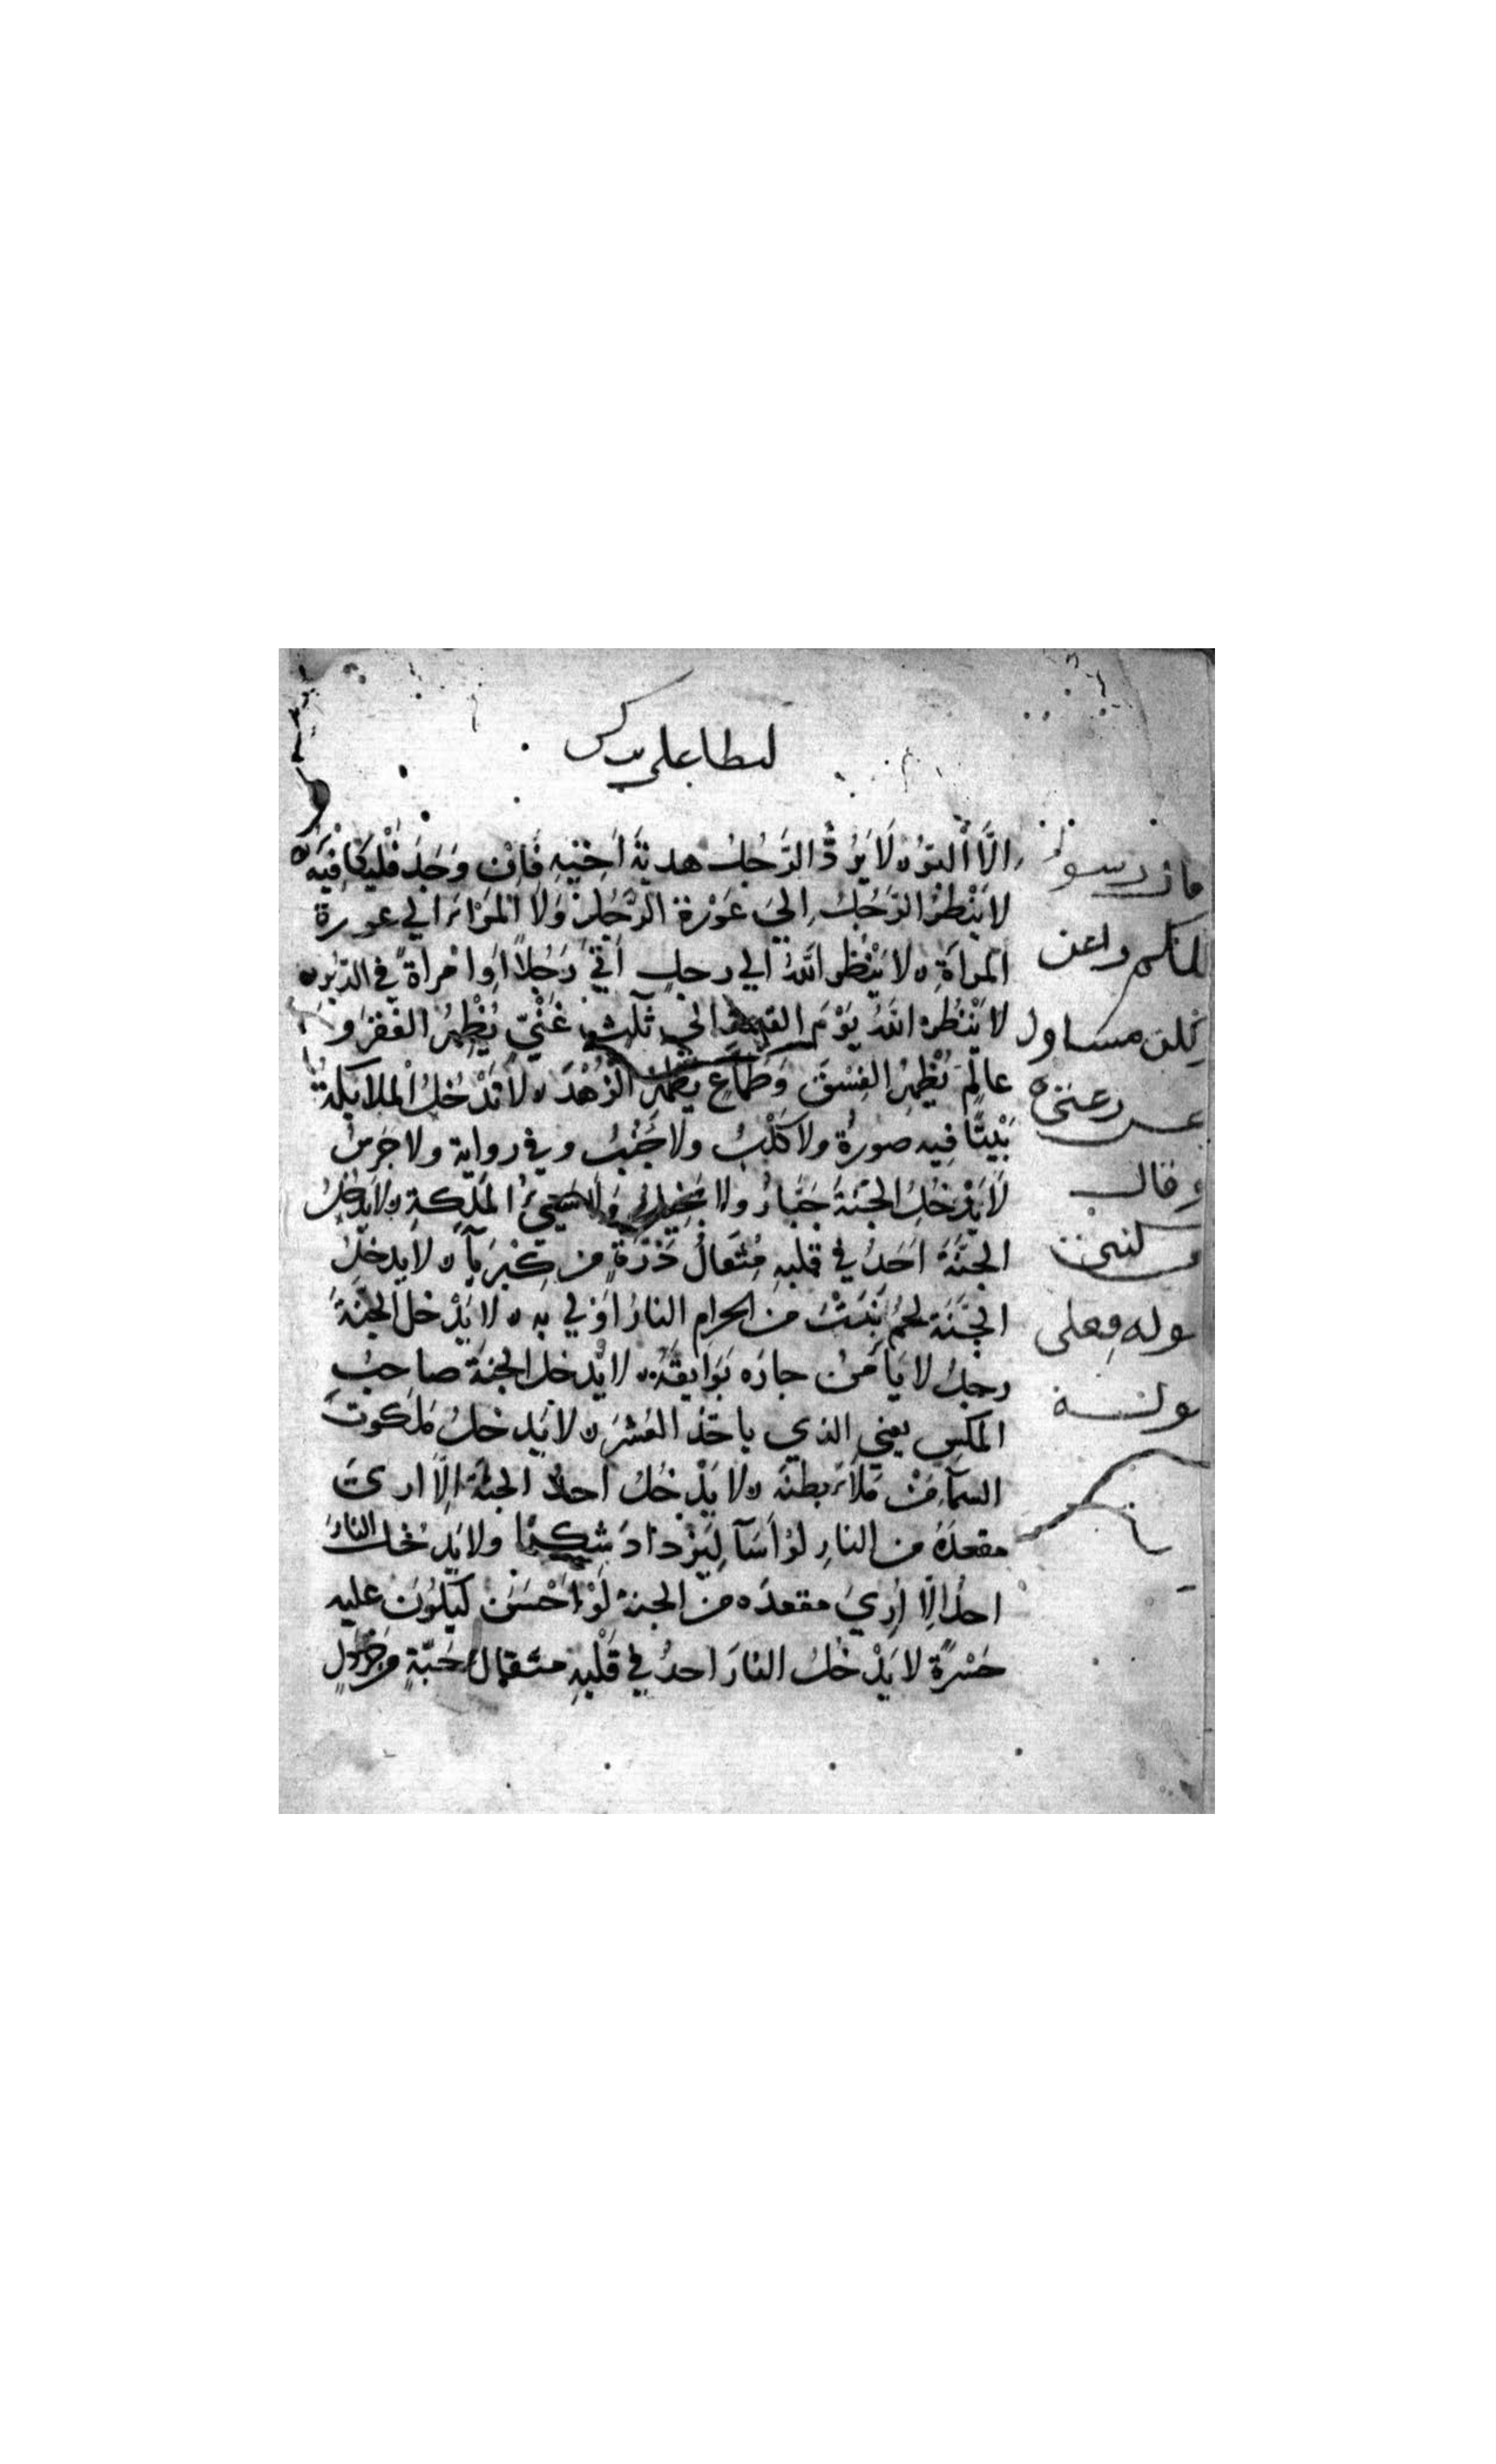 الَّا الْبِرُّ ه لَا يَرُدُّ الرَّجُلُ هديةَ اَخِيْهِ فَاِنْ وَجَدَ فَلْيُكَافِيْه ه
لا يَنْظُرُ الرَّجُلُ اِليَ عَوْرَة الرَّجُلِ وَلَا الْمَرْاَة الي عورة
المَراَةِ ه لا يَنْظُر اللّهُ الي رجلٍ اَتَيٰ رَجُلاً اَوِ امْراةً في الدّبُرِ ه
لا يَنْظُرُ اللّهُ يَوْمَ القيمة الي ثلثة غَنِيٍّ يُظْهِرُ الفقرَ و
عالِمٍ يُظْهِرُ الفِسْقَ وَطَمَّاعٍ يظهر الزُّهْدَ ه لا تَدْخُلُ الملايكةُ
بَيْتًا فيه صورةٌ ولا كَلْبٌ ولا جُنُبٌ وفي رواية ولا جَرَسٌ
لَا يَدْخُلُ الجَنَّةَ جَبَّارٌ ولا بَخِيلٌ وَلا سَيِّئُ المَلَكةِ ه لا يدخلُ
الجَنَّةَ اَحَدٌ في قلبِهِ مِثقالُ ذَرَّةٍ من كِبْرِيآء ه لا يدخلُ
الجَنَّةَ لحمٌ نَبَتَ مِنَ الحرامِ النارُ اَوْلي به ه لا يَدْخل الجنةَ
رجلٌ لا يَأمَنُ جارُه بَوَايقَهُ ه لا يدخل الجنةَ صاحبُ
المكسِ يعني الذي ياخذُ العُشْرَ ه لا يَدخلُ مَلكوتَ
السمآءِ مَنْ مَلَأَ بطنَهُ ه لا يَدْخُلُ احدٌ الجنةَ اِلّا اريَ
مقعدَهُ من النارِ لوْ اَسَآ لِيَزْدادَ شكرًا ولا يَدْخلُ النارَ
احدٌ اِلّا اُرِيَ مقعدَه من الجنة لَوْ اَحْسَنَ لِيَكُونَ عليه
حَسْرَةً لا يَدْخُلُ النارَ احدٌ في قَلْبِهِ مثقالُ حَبَّةٍ مِن خَرْدَلٍ
وقال